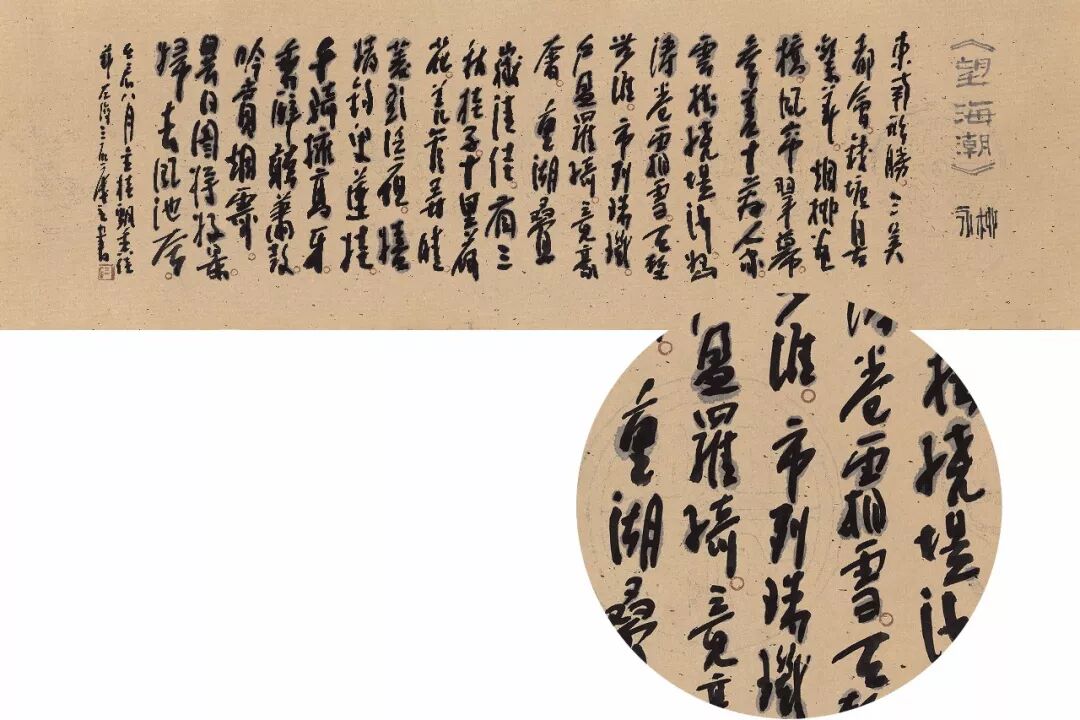 《望海潮》
柳永
東南形勝。三吳
都會錢塘自
繁華。煙柳畫
橋。風帘翠幕。
參差十萬人家。
雲樹繞堤沙。怒
濤卷霜雪。天塹
無涯。市列珠璣。
戶盈羅綺。競豪
奢。重湖疊
巘清佳。有三
秋桂子。十里荷
花。羌管弄晴。
菱歌泛夜。嬉
嬉釣叟蓮娃。
千騎擁高牙。
乘醉聽簫鼓。
吟賞煙霞。
異日圖將好景。
歸去鳳池誇。
壬辰八月
樹繞堤沙
卷霜雪。天
涯。市列珠璣
盈羅綺。競豪
重湖疊